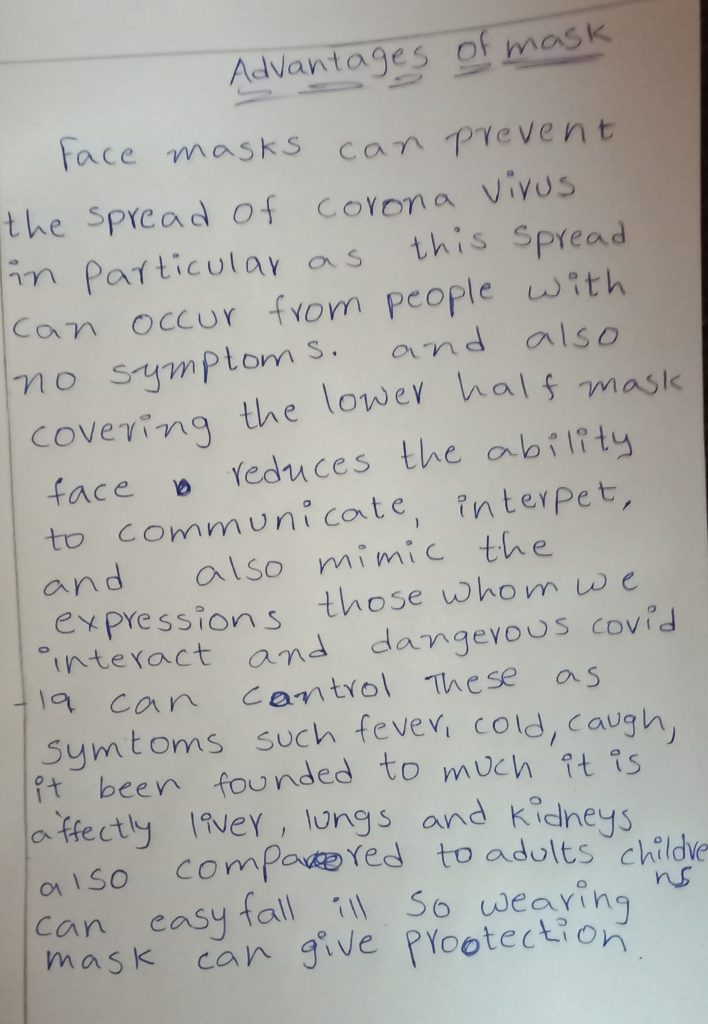 Advantages of mask
Face masks can prevent
the spread of corona virus
in particular as this spread
can occur from people with
no symptoms. and also
covering the lower half mask
face reduces the ability
to communicate, interpet,
and also mimic the
expressions those whom we
interact and dangerous covid
-19 can control These as
symtoms such fever, cold, caugh,
it been founded to much it is
affectly liver, lungs and kidneys
also compared to adults childre
ns
can easy fall ill so wearing
mask can give prootection.